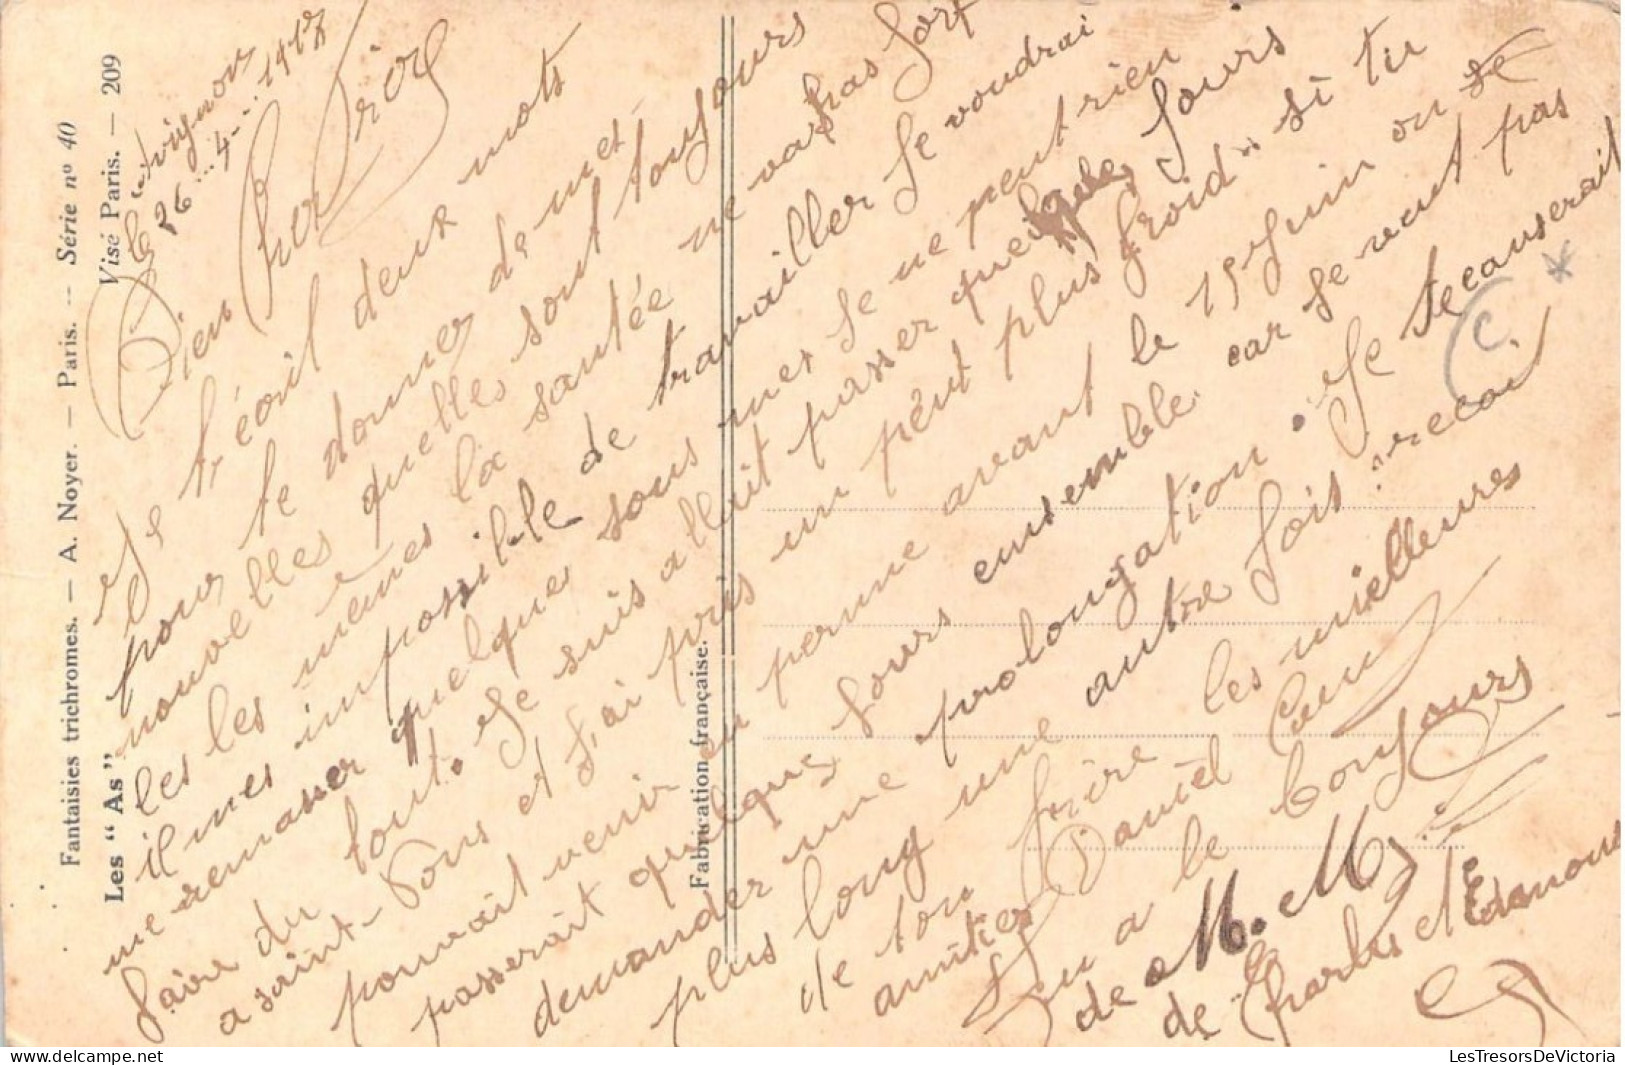 Fantaisies trichromes. — A. Noyer. — Paris. — Série nº 40
Les “ As ” Visé Paris. — 209
Fabrication française.
Avignon
le 26-4-1917
Bien cher Frère
Je t'écrit deux mots
pour te donner de mes
nouvelles quelles sont toujours
les les mêmes la santée ne va pas fort
il m'es impossible de travailler Je voudrai
me remasser quelque sous mes Je ne peut rien
faire du tout. Je suis allait passer quelques Jours
a saint et J'ai pris un peut plus froid si tu
pouvait venir en perme avant le 1er Juin on se
passerait quelque Jours ensemble car Je veut pas
demander une prolongation. Je te causerait
plus long une autre fois: recoit
de ton frère les mielleures
amitier Daniel
tu a le bonjours
de M. M.
de Charles et Edmond
C
LesTresorsDeVictoria